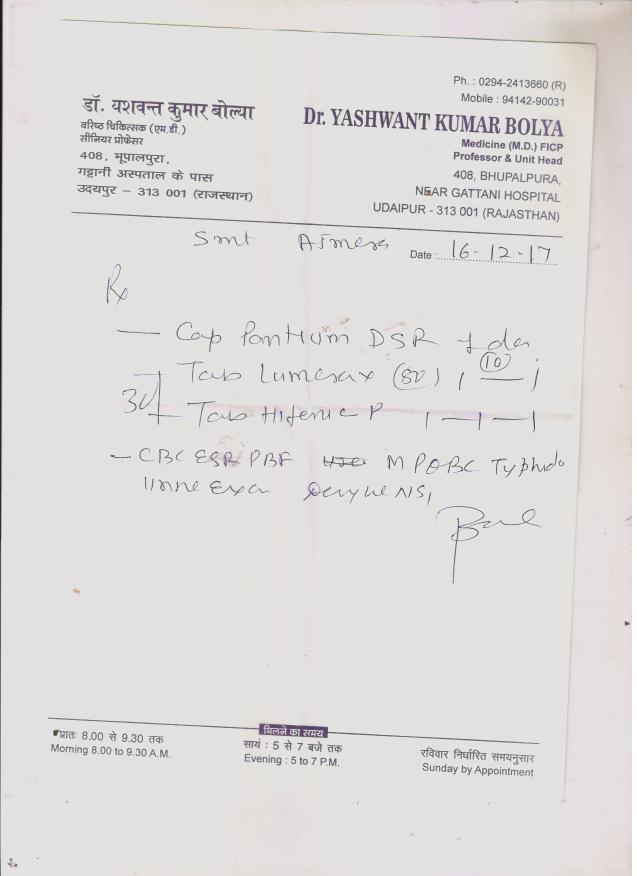 Ph. : 0294-2413660 (R)
Mobile : 94142-90031
डॉ. यशवन्त कुमार बोल्या
वरिष्ठ चिकित्सक (एम.डी.)
सीनियर प्रोफेसर
408, भूपालपुरा,
गट्टानी अस्पताल के पास
उदयपुर – 313 001 (राजस्थान)
Dr. YASHWANT KUMAR BOLYA
Medicine (M.D.) FICP
Professor & Unit Head
408, BHUPALPURA,
NEAR GATTANI HOSPITAL
UDAIPUR - 313 001 (RAJASTHAN)
Smt
Date : 16-12-17
Rx
— Cap Pantium DSR
Tab Lumerax (80) 1 — 1
(10)
Tab Hifenac P 1 — 1 — 1
— CBC ESR PBF MP QBC Typhido
Urine Exam Dengue NS1
मिलने का समय
प्रातः 8.00 से 9.30 तक
Morning 8.00 to 9.30 A.M.
सायं : 5 से 7 बजे तक
Evening : 5 to 7 P.M.
रविवार निर्धारित समयनुसार
Sunday by Appointment